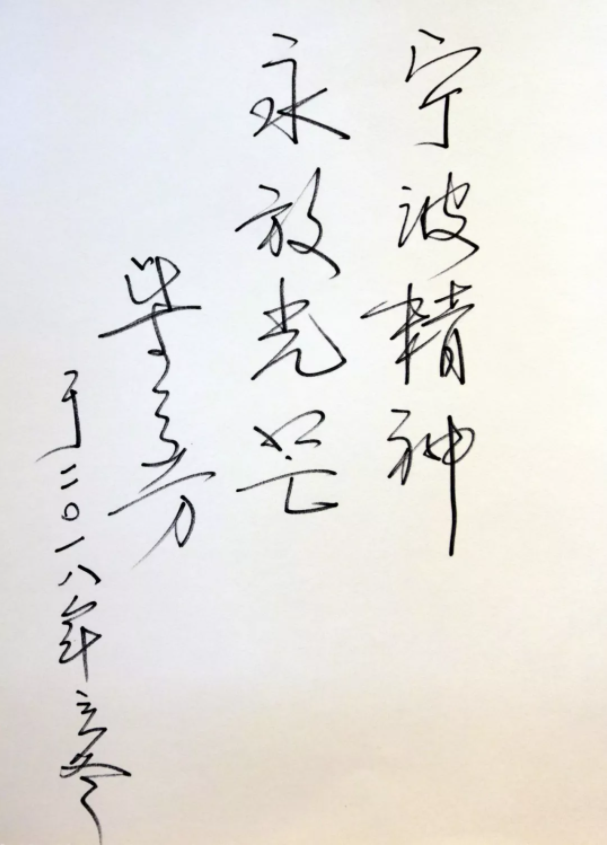 宁波精神
永放光芒
柴之芳
于二〇一八年立冬